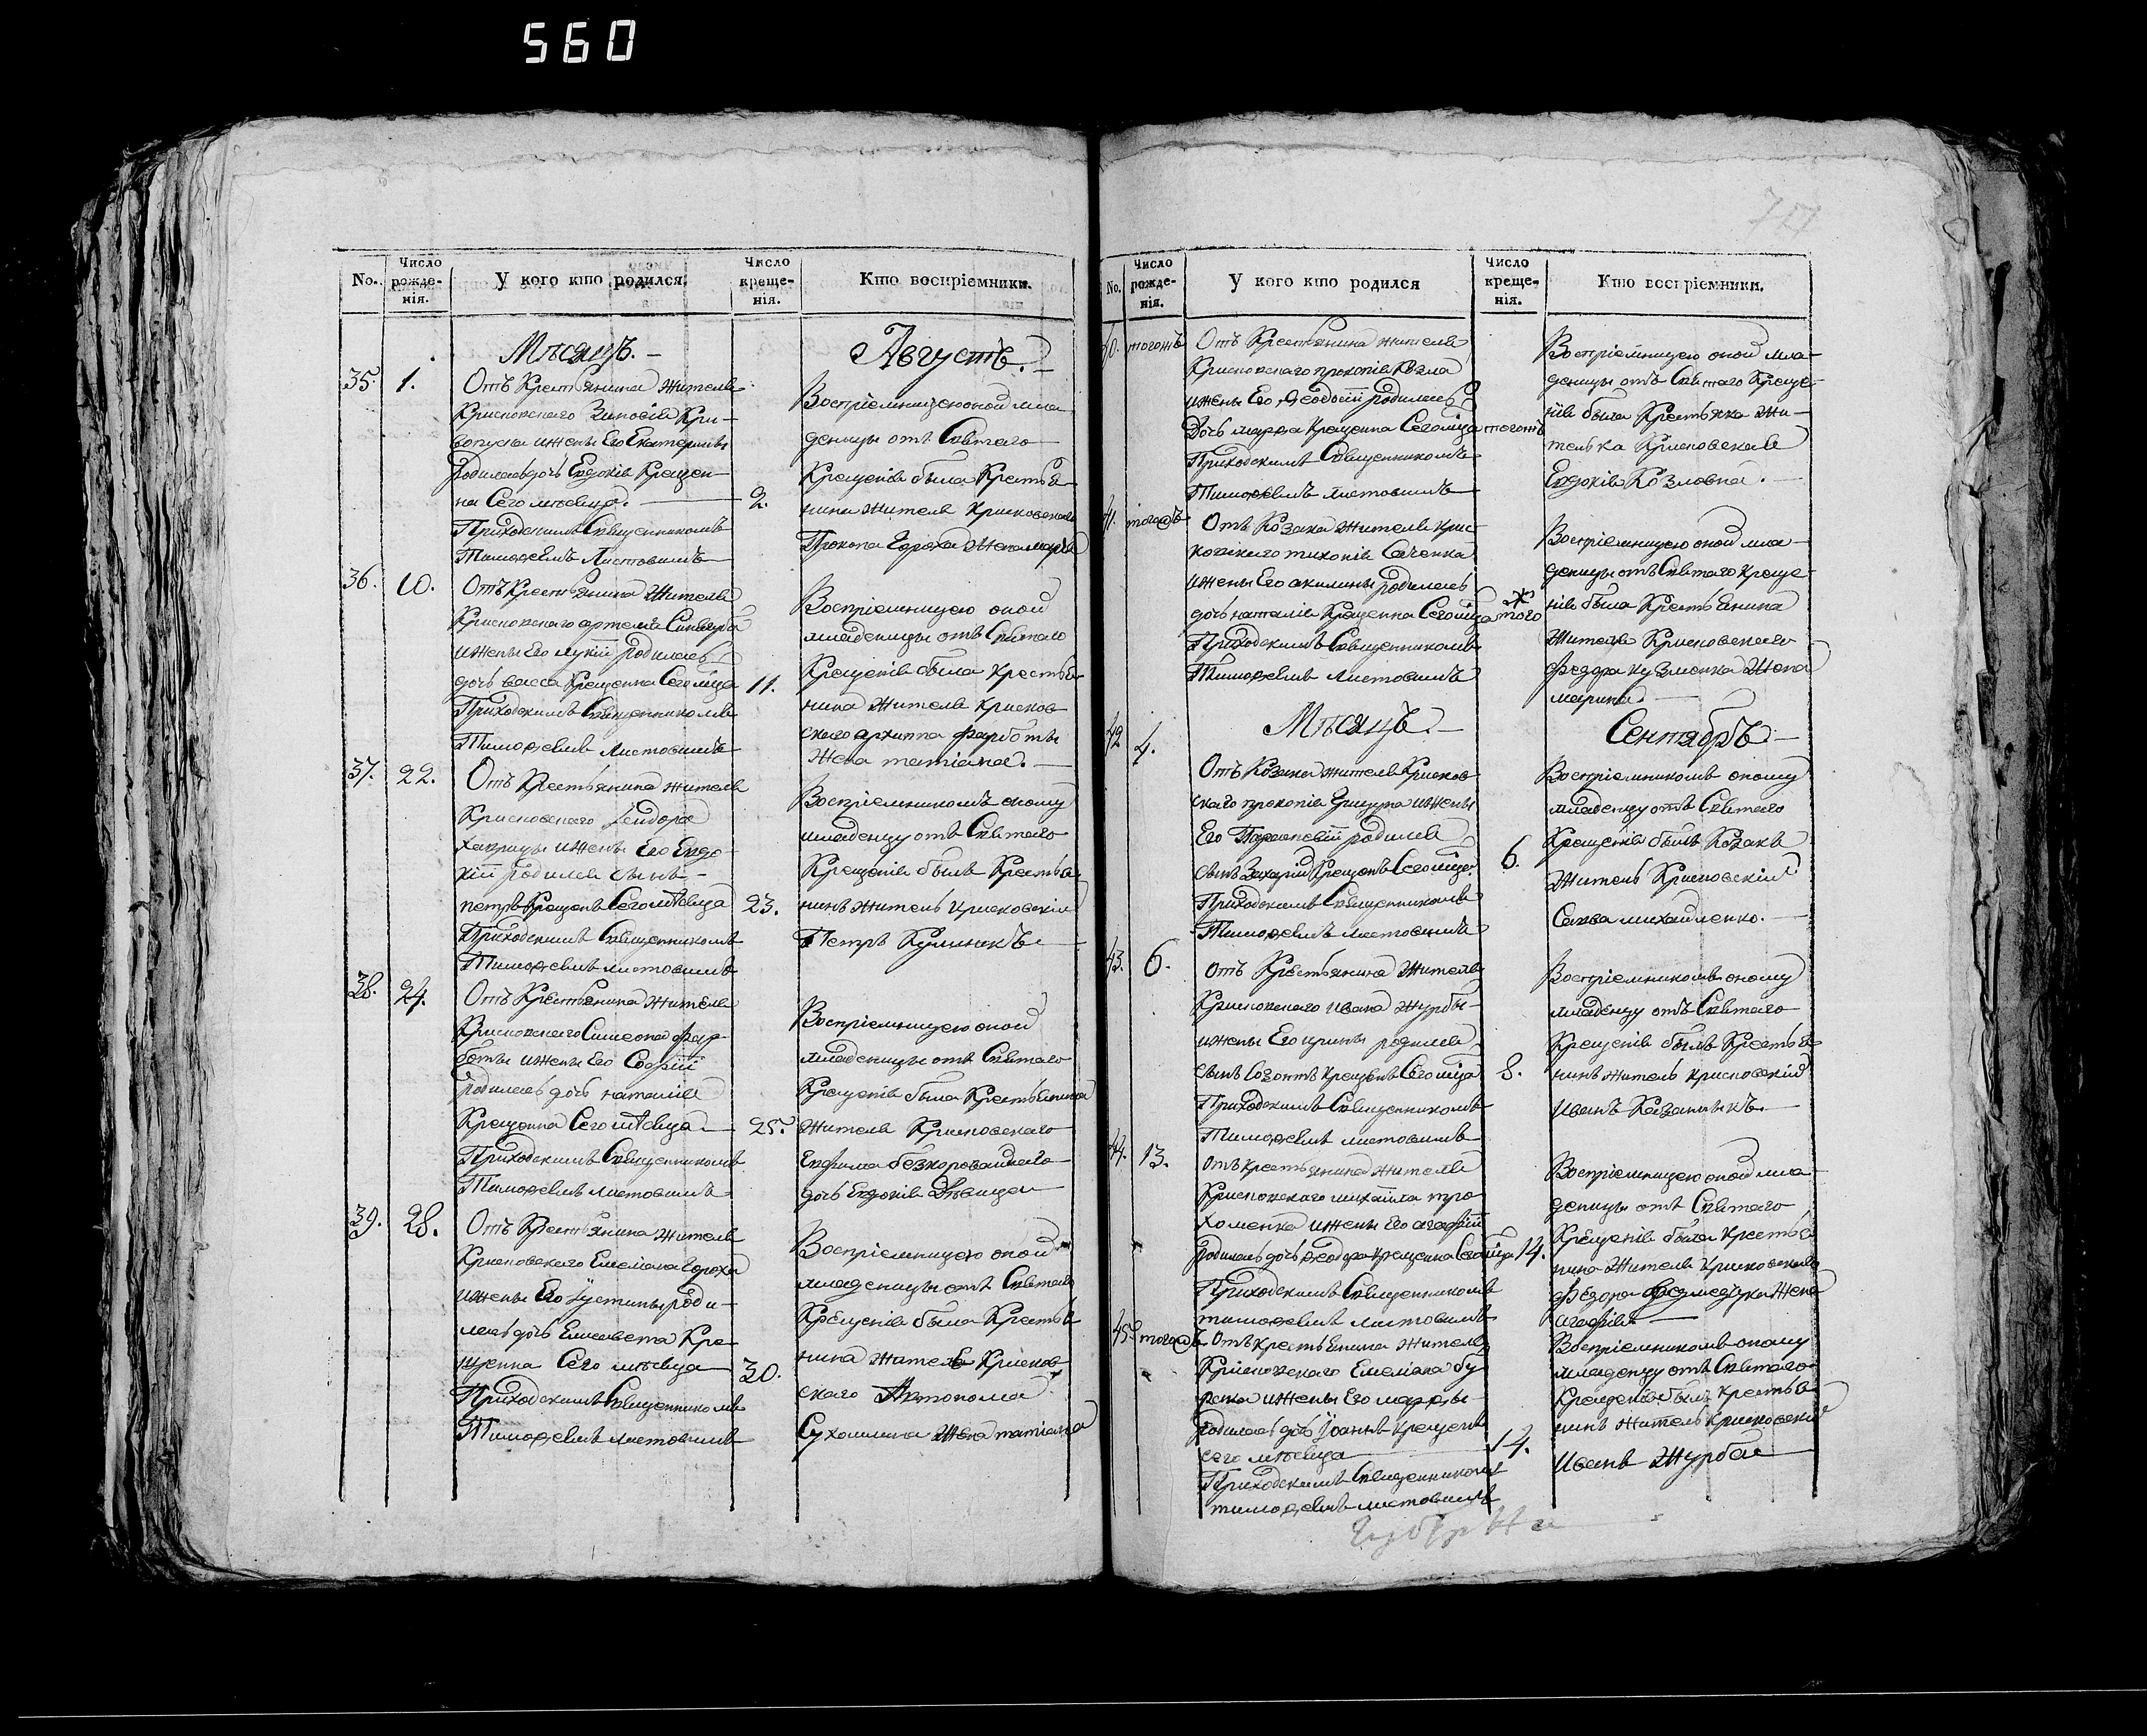 560
No. Число рожденія. У кого кто родился. Число крещенія. Кто воспріемники.
Мѣсяцъ. Августъ.
35. 1. Отъ Крестьянина жителя
Крисковскаго Зиновія Кри-
вопуска и жены Его Екатерины
родилась дочь Евдокія Крещен-
на Сего мѣсяца. 2.
Приходскимъ Священникомъ
Тимоѳеемъ Листовымъ
Воспріемницею оной мла
деницы отъ Святаго
Крещенія была Крестья
нина жителя Крисковскаго
Прокопа Гороха Жена марія
36. 10. Отъ Крестьянина Жителя
Крисковскаго артема
и жены Его лукіи родилась
дочь васса Крещенна Сего мѣсца 11.
Приходскимъ Священникомъ
Тимоѳеемъ Листовымъ
Воспріемницею оной
младеницы отъ Святаго
Крещенія была Крестья
нина Жителя Крисков
скаго архиппа фарботы
Жена татіана.
37. 22. Отъ Крестьянина жителя
Крисковскаго
и жены Его Евдо
кіи родился сынъ
петръ Крещенъ Сего мѣсяца 23.
Приходскимъ Священникомъ
Тимоѳеемъ листовымъ
Воспріемникомъ оному
младенцу отъ Святаго
Крещенія былъ Крестья
нинъ житель Крисковскій
Петръ Кулиникъ
38. 24. Отъ Крестьянина жителя
Крисковскаго Симеона фар
боты и жены Его Софіи
родилась дочь наталія
Крещенна Сего мѣсяца 25.
Приходскимъ Священникомъ
Тимоѳеемъ листовымъ
Воспріемницею оной
младеницы отъ Святаго
Крещенія была Крестьянина
Жителя Крисковскаго
Евфима безкоровайнаго
дочь Евдокія Дѣвица
39. 28. Отъ Крестьянина жителя
Крисковскаго Емеліана Гороха
и жены Его Іустины роди-
лась дочь Елисавета Кре
щенна Сего мѣсяца 30.
Приходскимъ Священникомъ
Тимоѳеемъ листовымъ
Воспріемницею оной
младеницы отъ Святаго
Крещенія была Крестья
нина жителя Крисков
скаго Автонома
Сухомлина Жена татіана
No. Число рожденія. У кого кто родился Число крещенія. Кто воспріемники.
40. тогожъ Отъ Крестьянина жителя
Крисковскаго прокопія Козла
и жены Его Ѳеодосіи родилась
Дочь марѳа Крещенна Сего мѣсца тогожъ
Приходскимъ Священникомъ
Тимоѳеемъ листовымъ
Воспріемницею оной мла-
деницы отъ Святаго Креще-
нія была Крестьянка жи-
телька Крисковская
Евдокія Козловна.
41. тогожъ Отъ Козака Жителя Крис-
ковскаго тихонія Саченка
и жены Его акилины родилась
дочь наталія Крещенна Сего мѣсца того ж
Приходскимъ Священникомъ
Тимоѳеемъ листовымъ
Воспріемницею оной мла
деницы отъ Святаго Креще-
нія была Крестьянина
Жителя Крисковскаго
федора кузменка Жена
марина.
Мѣсяцъ. Сентябрь.
42. 4. Отъ Козака жителя Крисков
скаго прокопія и жены
Его Параскевіи родился
сынъ Захарій Крещенъ Сего мѣсца 6.
Приходскимъ Священникомъ
Тимоѳеемъ листовымъ
Воспріемникомъ оному
младенцу отъ Святаго
Крещенія былъ Козакъ
Житель Крисковскій
Савва михайленко.
43. 6. Отъ Крестьянина Жителя
Крисковскаго ивана Журбы
и жены Его ирины родился
сынъ Созонтъ Крещенъ Сего мѣсца 8.
Приходскимъ Священникомъ
Тимоѳеемъ листовымъ
Воспріемникомъ оному
младенцу отъ Святаго
Крещенія былъ Крестья
нинъ житель крисковскій
иванъ Козаникъ.
44. 13. Отъ крестьянина жителя
Крисковскаго михаила тро
хименка и жены Его агафіи
родилась дочь ѳеодора крещенна Сего мѣсца 14.
Приходскимъ Священникомъ
тимоѳеемъ листовымъ
Воспріемницею оной мла
деницы отъ Святаго
Крещенія была Крестья
нина Жителя Крисковскаго
федора Жена
агафія
45. тогожъ Отъ крестьянина жителя
Крисковскаго Емеліана бу
ренка и жены Его марѳы
родилась дочь Іоаннъ крещенъ
сего мѣсяца 14.
Приходскимъ Священникомъ
тимоѳеемъ листовымъ
Воспріемникомъ оному
младенцу отъ Святаго
Крещенія былъ крестья
нинъ житель крисковскій
иванъ Журба